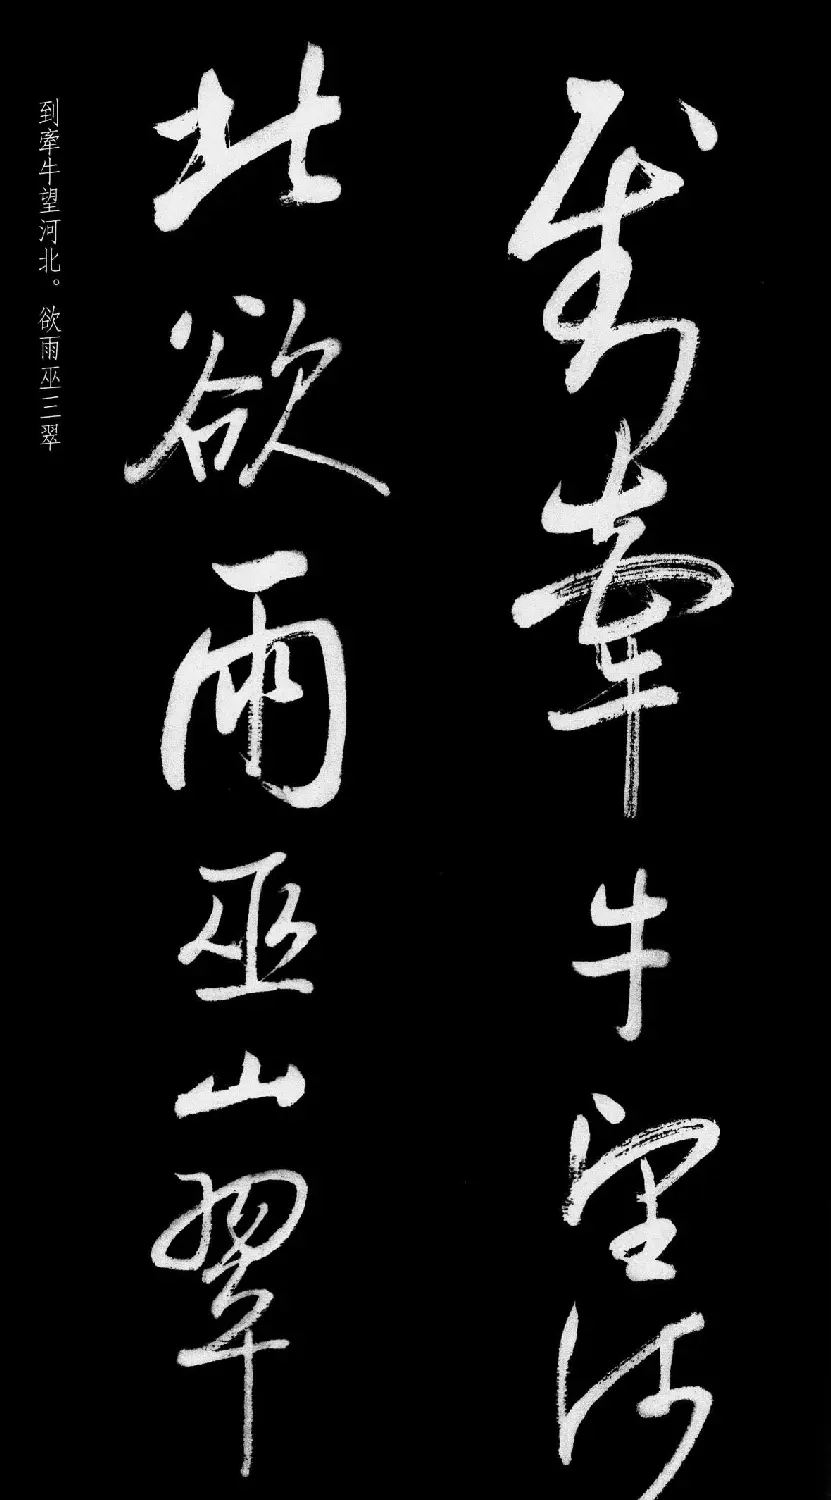 到牽牛望河
北欲雨巫山翠
到牽牛望河北。欲雨巫三翠